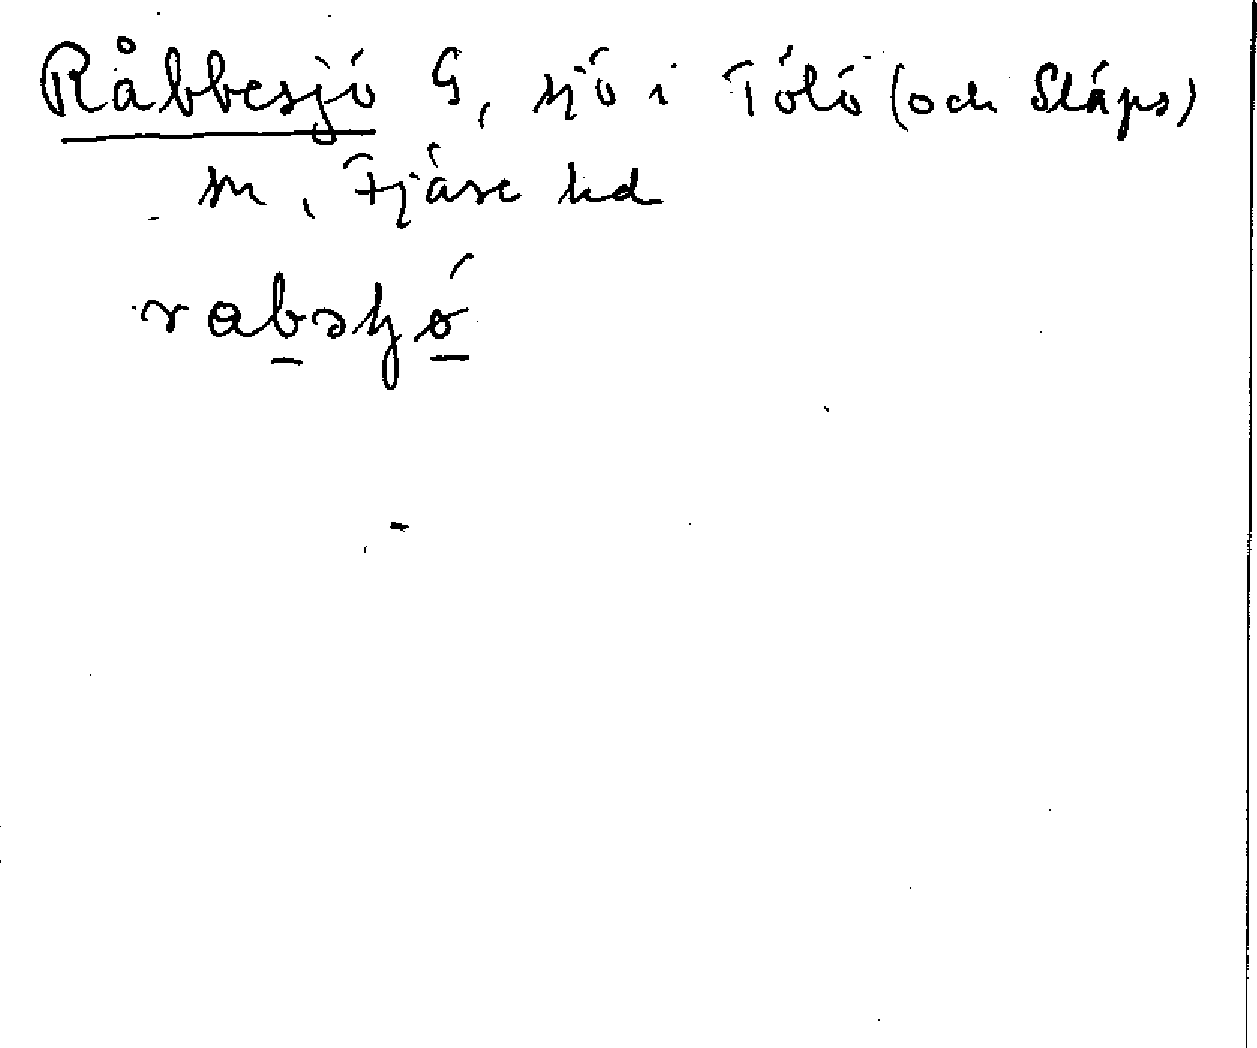 Råbbesjö G, sjö i Tölö (och Släps)
sn, Fjäre hd
rabsjö